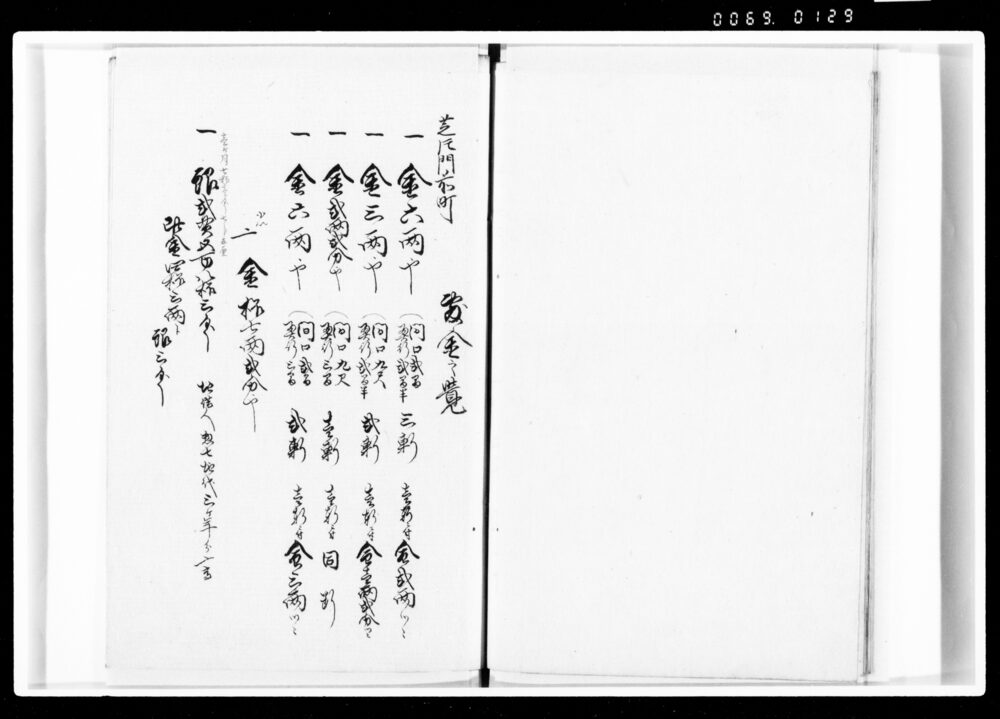 0069. 0129
芝片門前町
敷金之覚
一 金六両也 (間口弐間 奥行弐間半 三軒 壱軒ニ付金弐両ツヽ
一 金三両也 (間口九尺 奥行弐間半 弐軒 壱軒ニ付金壱両弐分ツヽ
一 金弐両弐分也 (間口九尺 奥行三間 壱軒 壱軒ニ付同断
一 金六両也 (間口弐間 奥行三間 弐軒 壱軒ニ付金三両ツヽ
小以
金拾七両弐分也
一 銀弐貫五百八拾三匁 地借人 店七地代三ヶ年分
此金四拾三両ト
銀三匁